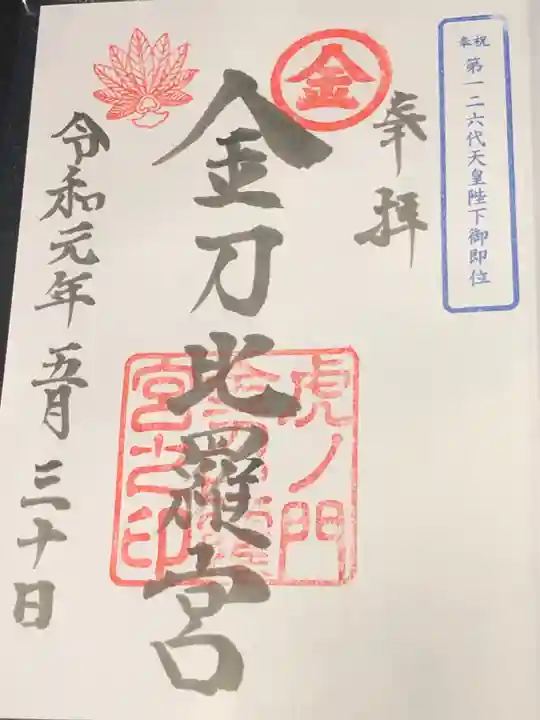 奉祝
第一二六代天皇陛下御即位
奉拝
金
金刀比羅宮
虎ノ門
金刀比羅
宮之印
令和元年五月三十日